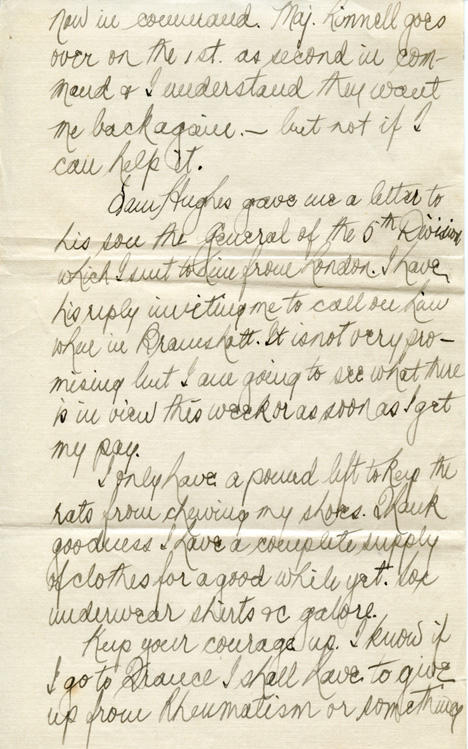 now in command. Maj. Kinnell goes
over on the 1st. as second in com-
mand & I understand they want
me back again. — but not if I
can help it.
Sam Hughes gave me a letter to
his son the General of the 5th Division
which I sent to him from London. I have
his reply inviting me to call on him
when in Bramshott. It is not very pro-
mising but I am going to see what there
is in view this week or as soon as I get
my pay.
I only have a pound left to keep the
rats from chewing my shoes. Thank
goodness I have a complete supply
of clothes for a good while yet. Sox
underwear shirts &c galore.
Keep your courage up. I know if
I go to France I shall have to give
up from Rheumatism or something